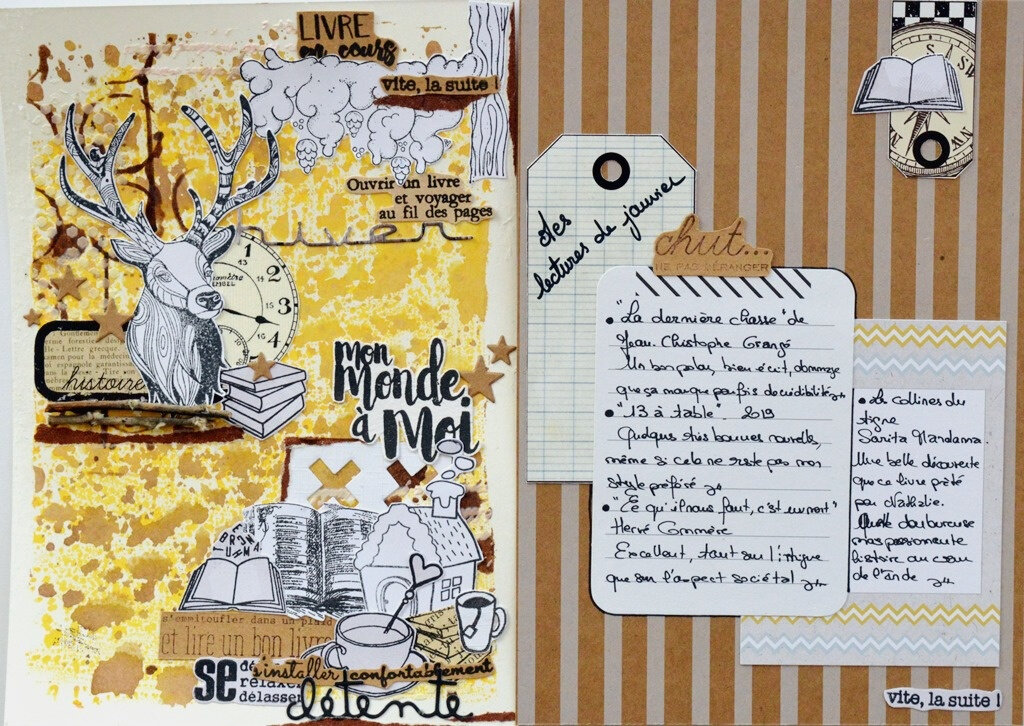 LIVRE
en cours
vite, la suite !
Ouvrir un livre
et voyager
au fil des pages
hiver
1
2
3
4
histoire
mon
Monde
à Moi
s'emmitoufler dans un plaid
et lire un bon livre
se
relaxer
délasser
s'installer confortablement
détente
Les
lectures de janvier
chut...
NE PAS DÉRANGER
• "La dernière chasse" de
Jean-Christophe Grangé
Un bon polar, bien écrit, dommage
que ça manque parfois de crédibilité
• "13 à table" 2019
Quelques très bonnes nouvelles,
même si cela ne reste pas mon
style préféré
• "Ce qu'il nous faut, c'est un mort"
Hervé Commère
Excellent, tant sur l'intrigue
que sur l'aspect sociétal
• Les collines du
tigre
Sarita Mandanna.
Une belle découverte
que ce livre prêté
par Nathalie.
douloureuse
mais passionnante
histoire au cœur
de l'Inde
vite, la suite !